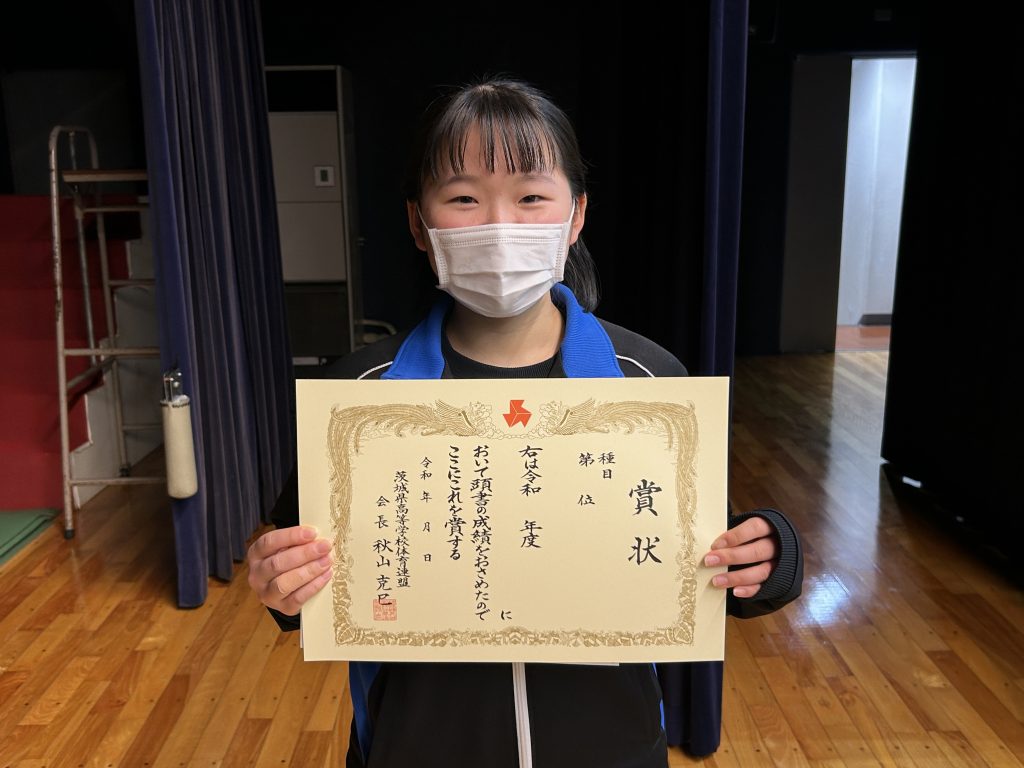 賞状
種目
第 位
右は令和 年度
に
おいて頭書の成績をおさめたので
ここにこれを賞する
令和 年 月 日
茨城県高等学校体育連盟
会長 秋山克巳